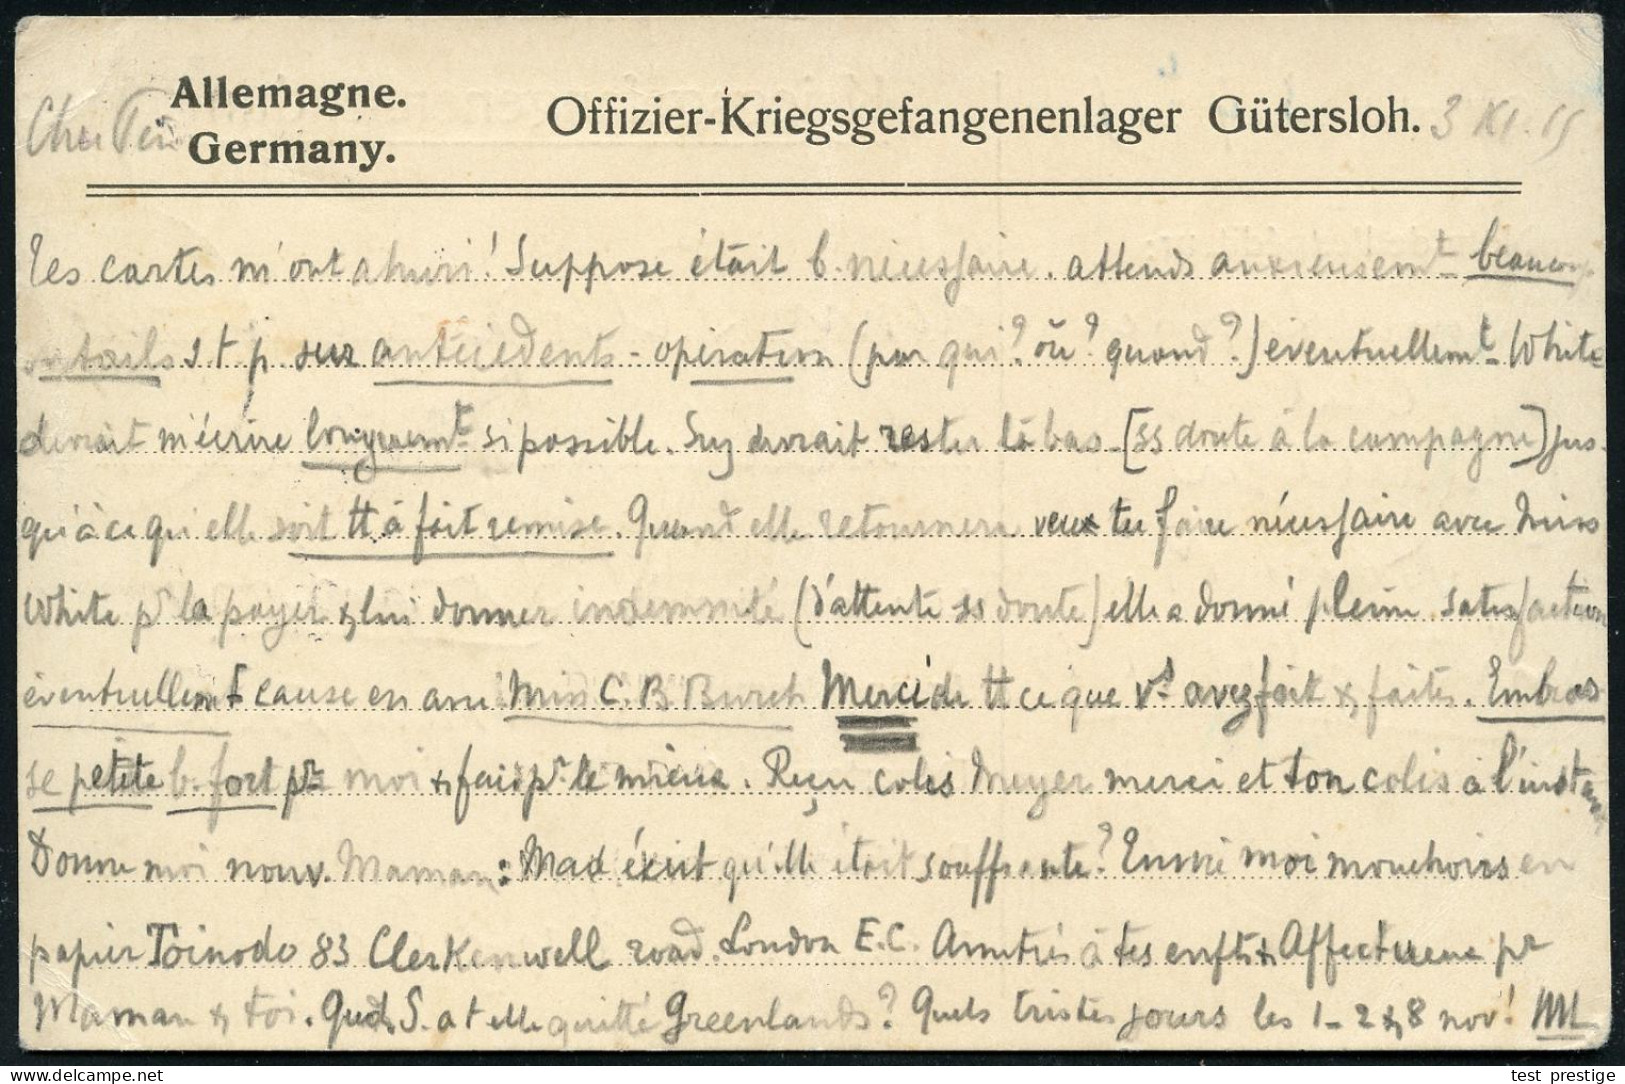 Allemagne.
Germany.
Offizier-Kriegsgefangenenlager Gütersloh. 3 XI. 15
Tes cartes m'ont ahuri! Suppose était b. nécessaire. attends anxieusemt beaucoup
détails s.t.p. sur antécédents - opération (par qui? où? quand?) éventuellemt White
devrait m'écrire longuemt si possible. Suz devrait rester là bas - [ss doute à la campagne] jus-
qu'à ce qu'elle soit tt à fait remise. Quand elle retournera veux tu faire nécessaire avec Miss
White pr la payer & lui donner indemnité (d'attente ss doute) elle a donné pleine satisfaction
éventuellemt cause en avec Miss C. B Burch Merci de tt ce que vs avez fait & faites. Embras
se petite b. fort pr moi & fais pr le mieux. Reçu colis Meyer merci et ton colis à l'instant
Donne moi nouv. Maman: Mad écrit qu'elle était souffrante? Envoie moi mouchoirs en
papier Toinodo 83 Clerkenwell road. London E.C. Amitiés à tes enfts & Affectueux pr
Maman & toi. Qud S. a t elle quitté Greenlands? Quels tristes jours les 1-2 & 8 nov! ML
test prestige